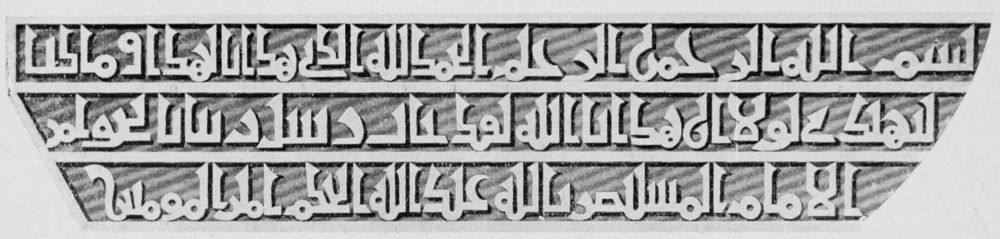 بسم الله الرحمن الرحيم الحمد لله الذي هدانا لهذا وما كنا
لنهتدي لولا ان هدانا الله لقد جات رسل ربنا بالحق امر
الامام المستنصر بالله عبد الله الحكم امير المومنين